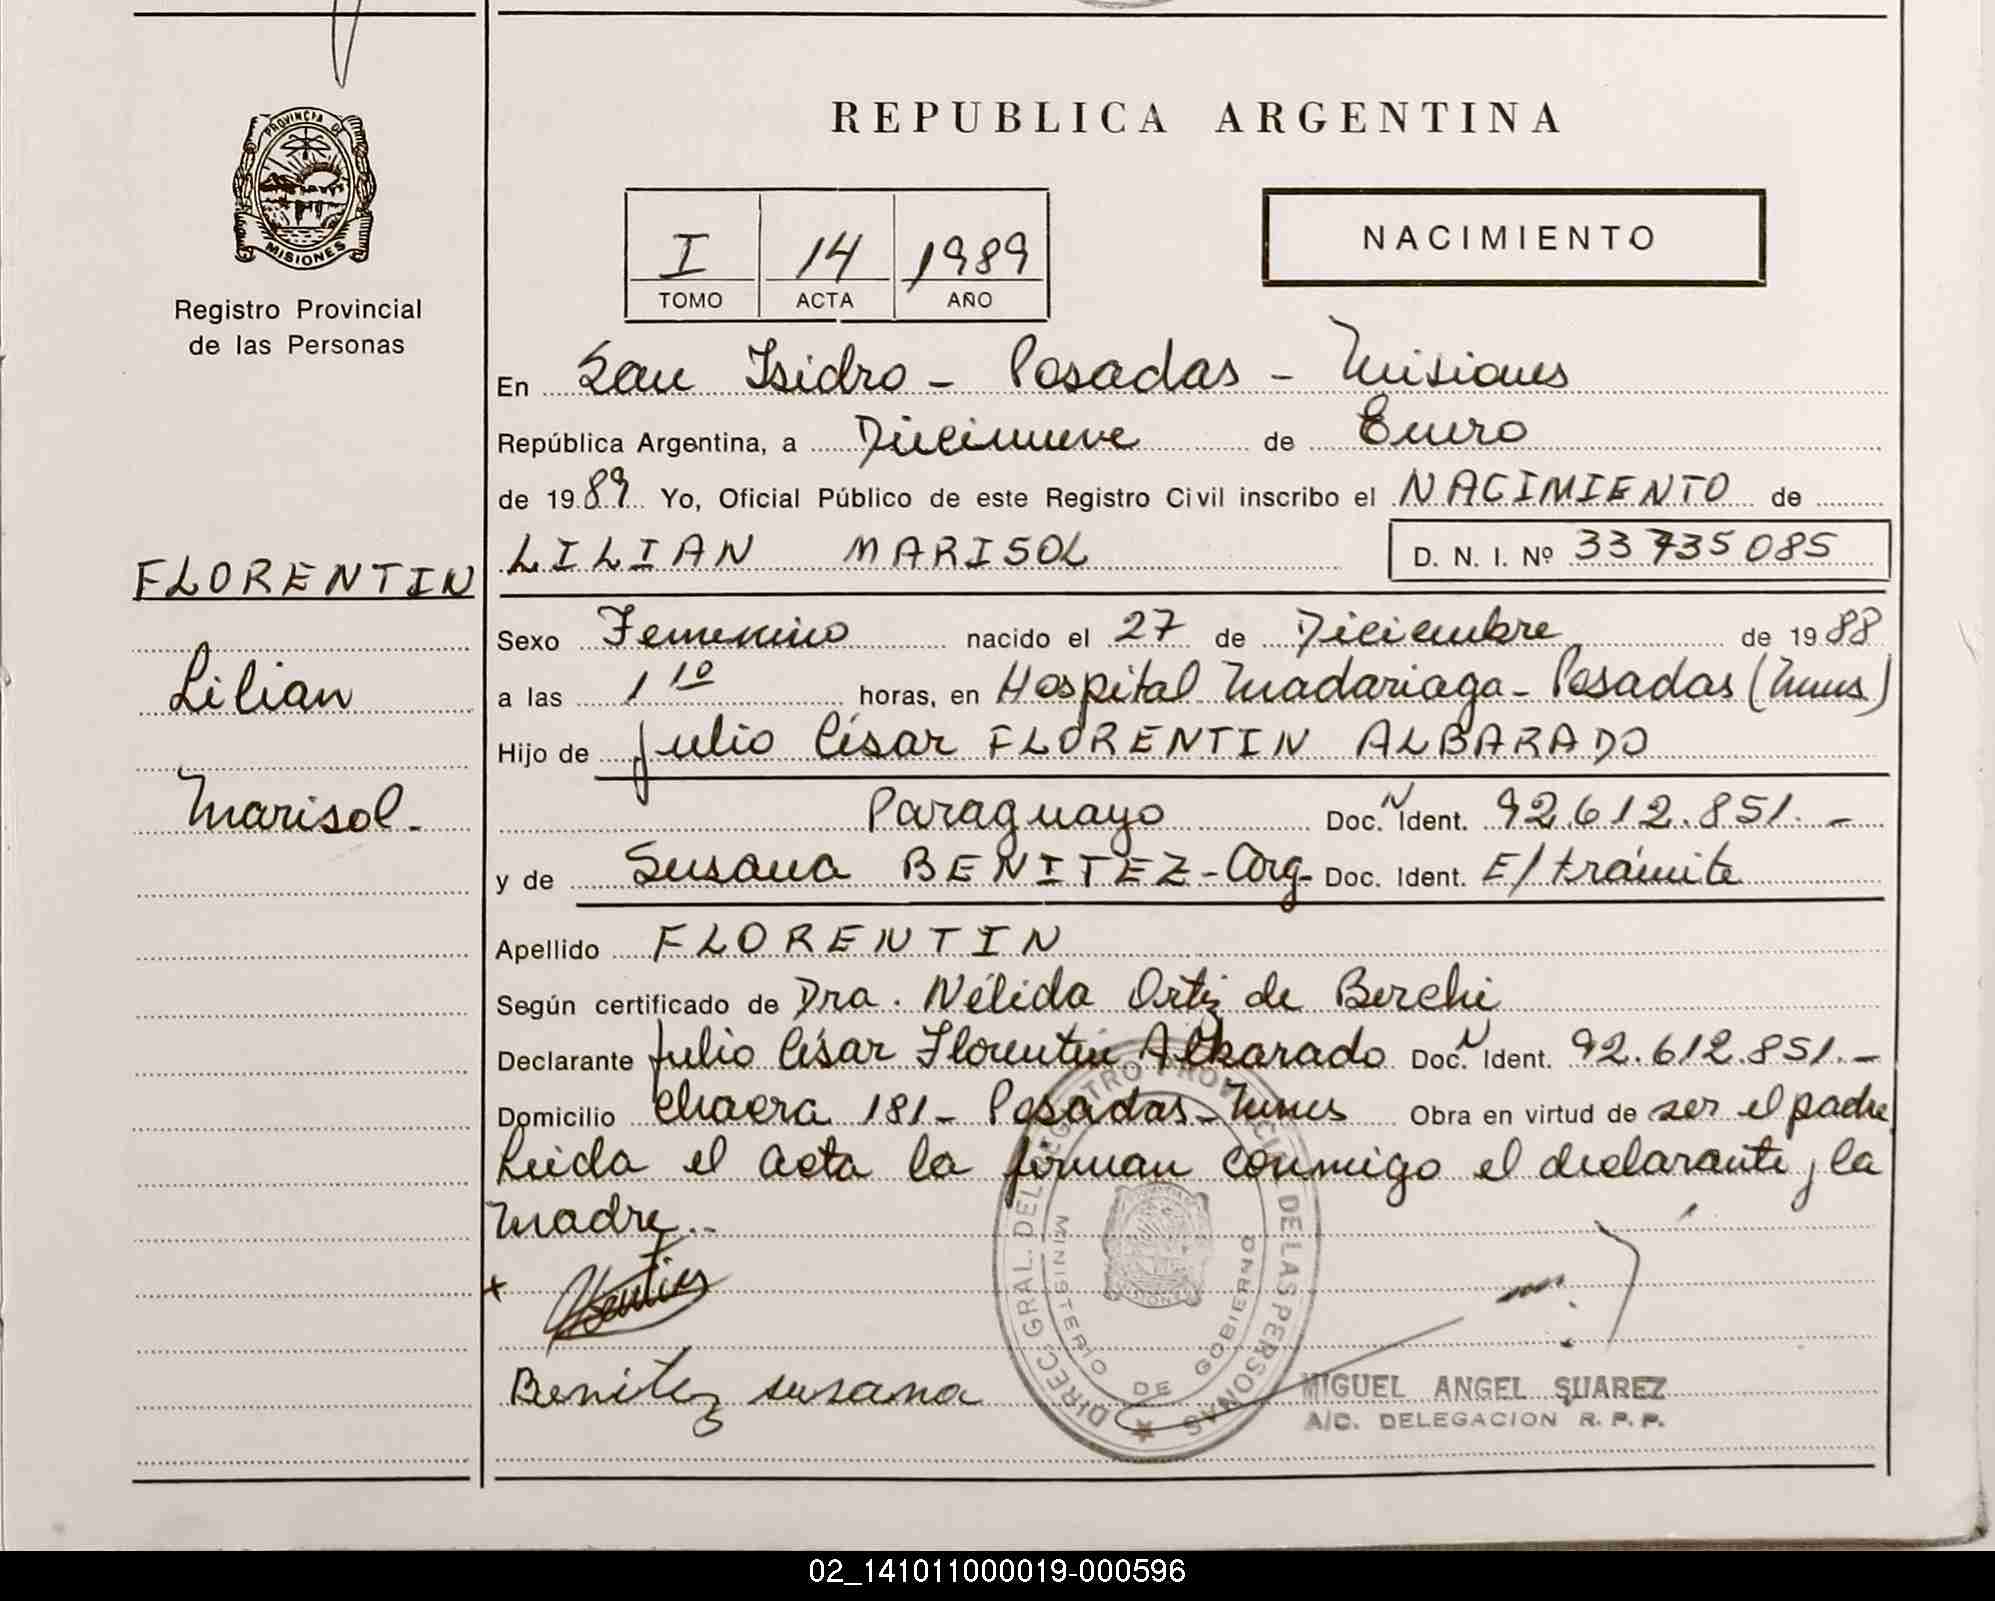 REPUBLICA ARGENTINA
PROVINCIA DE
MISIONES
Registro Provincial
de las Personas
I 14 1989
TOMO ACTA AÑO
NACIMIENTO
En San Isidro - Posadas - Misiones
República Argentina, a Diecinueve de Enero
de 1989 Yo, Oficial Público de este Registro Civil inscribo el NACIMIENTO de
LILIAN MARISOL D. N. I. Nº 33735085
FLORENTIN
Lilian
Marisol.-
Sexo Femenino nacido el 27 de Diciembre de 1988
a las 1 10 horas, en Hospital Madariaga - Posadas (Mnes)
Hijo de Julio César FLORENTIN ALBARADO
Paraguayo Doc. N Ident. 92.612.851.-
y de Susana BENITEZ - Arg - Doc. Ident. E/trámite
Apellido FLORENTIN
Según certificado de Dra. Nélida Ortiz de Berchi
Declarante Julio César Florentin Albarado Doc. N Ident. 92.612.851.-
Domicilio Chacra 181 - Posadas - Mnes Obra en virtud de ser el padre
Leida el acta la firman conmigo el declarante, la
madre.-
x
Benitez susana
DIREC. GRAL. DEL REGISTRO PROVINCIAL DE LAS PERSONAS
MINISTERIO DE GOBIERNO
MIGUEL ANGEL SUAREZ
A/C. DELEGACION R. P. P.
02_141011000019-000596